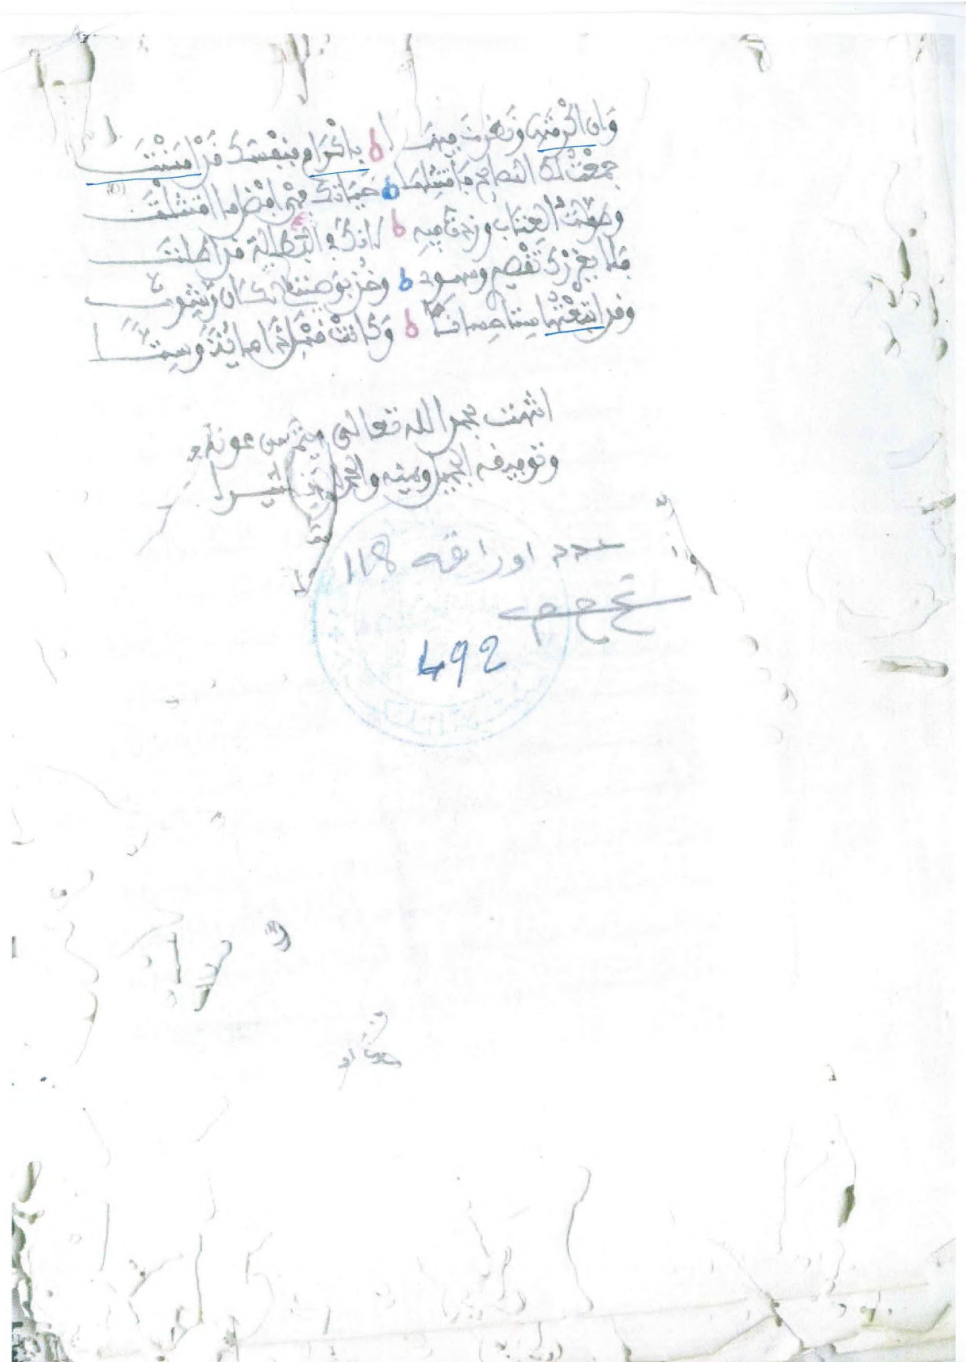 وَان اكْرَمْتَهَا ونَظَرْتَ فِيهَا باكْرَامٍ فنَفْسَكَ قَدْ اهَنْتَ
جمَعْتُ لكَ النصايح فامْتَثِلْهَا حَيَاتَكَ فهْيَ افْضَل ما امْتَثلْتَ
وطوّلتُ العِتَاب وزدتُ فيه لأنك في البَطَالة قد اطلتَ
فلا يغْررك تقْصِيرى وسهوى وخُذْ بوَصيتى لك ان رشدتَ
وقد اتبَعْتُهَا ستا حِسانًا وَكَانتْ قَبْل ذَا مائةً وسِتَّا
انتهت بحمد الله تعالى وبحسن عونه
وتوفيقه الجميل ومنه والحمد لله كثيرا
عدد اوراقه 118
492